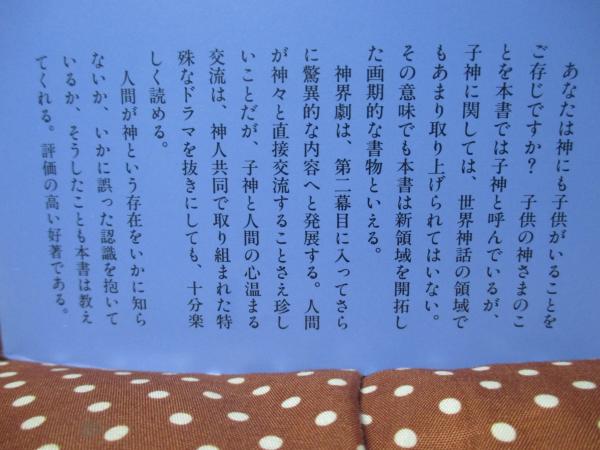 あなたは神にも子供がいることを
ご存じですか？　子供の神さまのこ
とを本書では子神と呼んでいるが、
子神に関しては、世界神話の領域で
もあまり取り上げられてはいない。
その意味でも本書は新領域を開拓し
た画期的な書物といえる。
神界劇は、第二幕目に入ってさら
に驚異的な内容へと発展する。人間
が神々と直接交流することさえ珍し
いことだが、子神と人間の心温まる
交流は、神人共同で取り組まれた特
殊なドラマを抜きにしても、十分楽
しく読める。
人間が神という存在をいかに知ら
ないか、いかに誤った認識を抱いて
いるか、そうしたことも本書は教え
てくれる。評価の高い好著である。